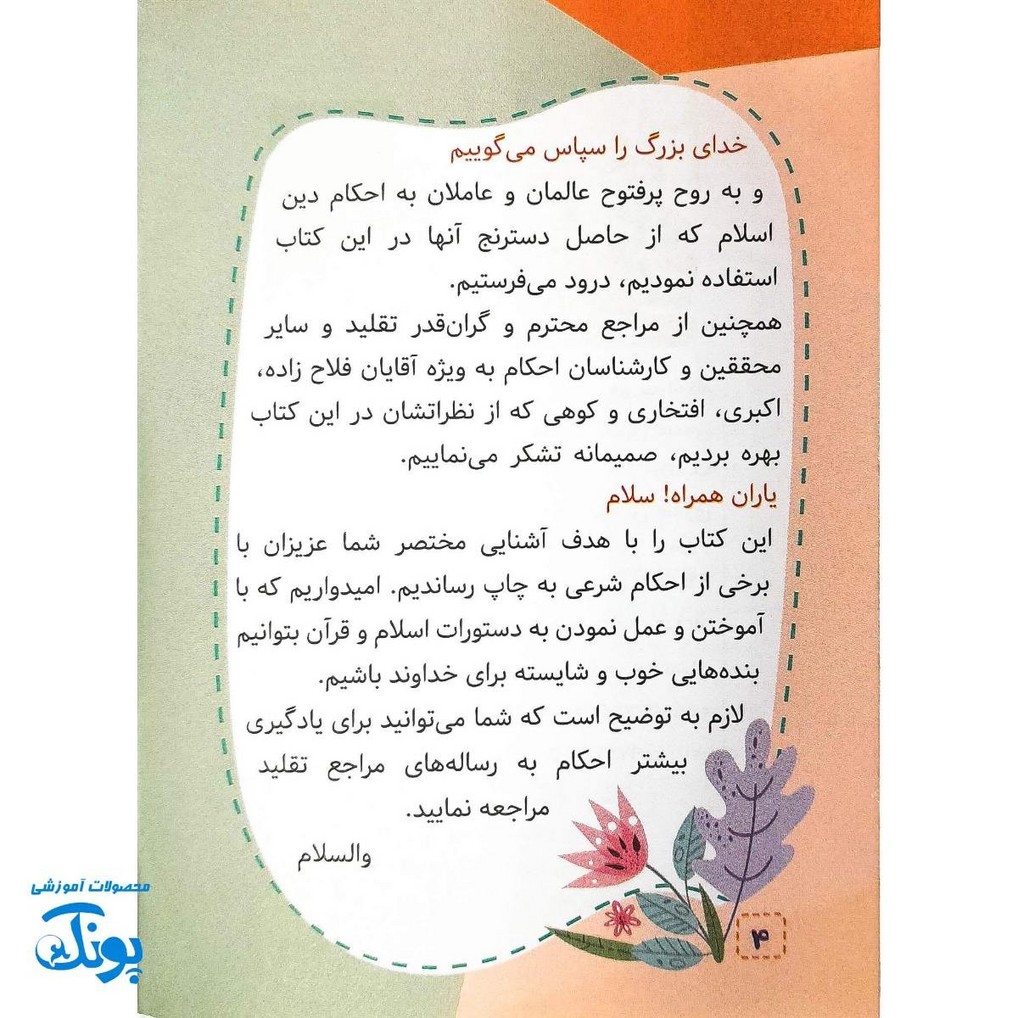 خدای بزرگ را سپاس می‌گوییم
و به روح پرفتوح عالمان و عاملان به احکام دین
اسلام که از حاصل دسترنج آنها در این کتاب
استفاده نمودیم، درود می‌فرستیم.
همچنین از مراجع محترم و گران‌قدر تقلید و سایر
محققین و کارشناسان احکام به ویژه آقایان فلاح زاده،
اکبری، افتخاری و کوهی که از نظراتشان در این کتاب
بهره بردیم، صمیمانه تشکر می‌نماییم.
یاران همراه! سلام
این کتاب را با هدف آشنایی مختصر شما عزیزان با
برخی از احکام شرعی به چاپ رساندیم. امیدواریم که با
آموختن و عمل نمودن به دستورات اسلام و قرآن بتوانیم
بنده‌هایی خوب و شایسته برای خداوند باشیم.
لازم به توضیح است که شما می‌توانید برای یادگیری
بیشتر احکام به رساله‌های مراجع تقلید
مراجعه نمایید.
والسلام
۴
محصولات آموزشی
پونک